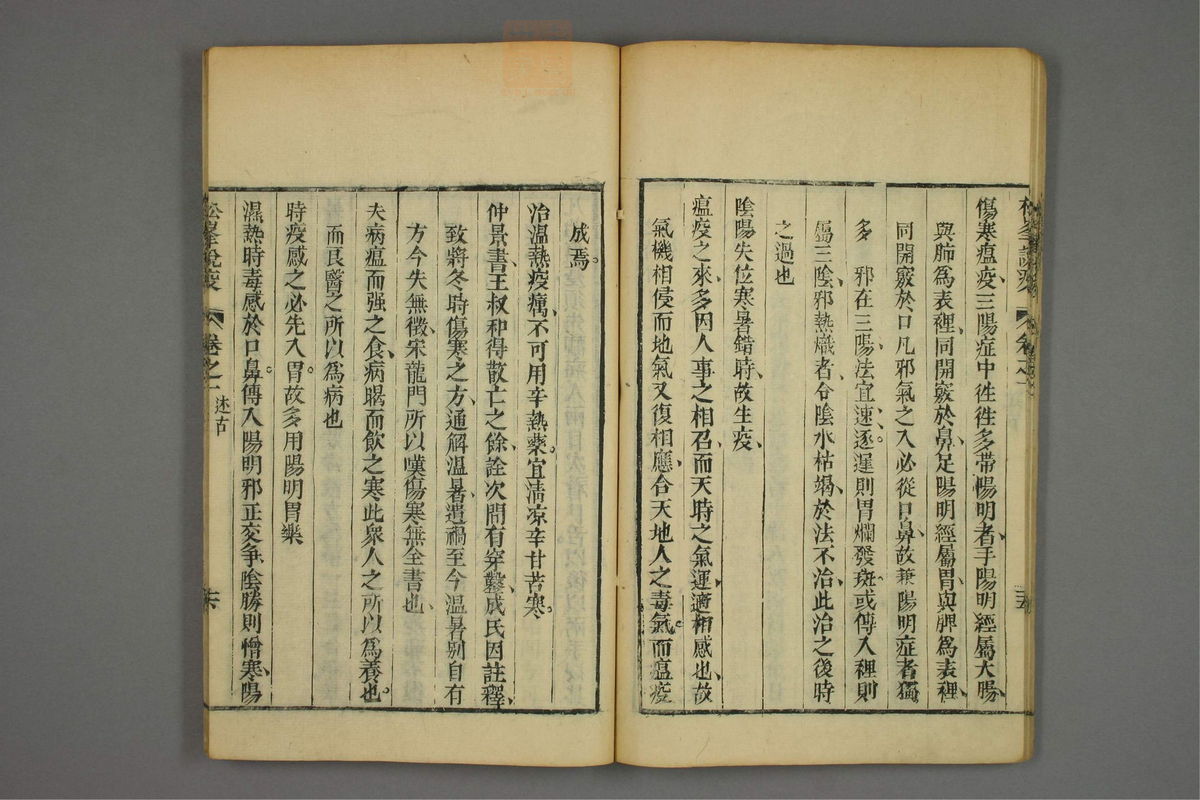 傷寒瘟疫三陽症中徃徃多帶陽明者手陽明經屬大腸
與肺爲表裡同開竅於鼻足陽明經屬胃與脾爲表裡
同開竅於口凡邪氣之入必從口鼻故兼陽明症者獨
多　邪在三陽法宜速逐遲則胃爛發斑或傳入裡則
屬三陰邪熱熾者令陰水枯竭於法不治此治之後時
之過也
陰陽失位寒暑錯時故生疫
瘟疫之來多因人事之相召而天時之氣運適相感也故
氣機相侵而地氣又復相應合天地人之毒氣而瘟疫
成焉
治溫熱疫癘不可用辛熱藥宜清凉辛甘苦寒
仲景書王叔和得散亡之餘詮次間有穿鑿成氏因註釋
致將冬時傷寒之方通解溫暑遺禍至今溫暑別自有
方今失無徵宋龍門所以嘆傷寒無全書也
夫病瘟而强之食病暍而飲之寒此衆人之所以爲養也
而良醫之所以爲病也
時疫感之必先入胃故多用陽明胃藥
濕熱時毒感於口鼻傳入陽明邪正交争陰勝則憎寒陽
松峯說疫
卷之一
述古